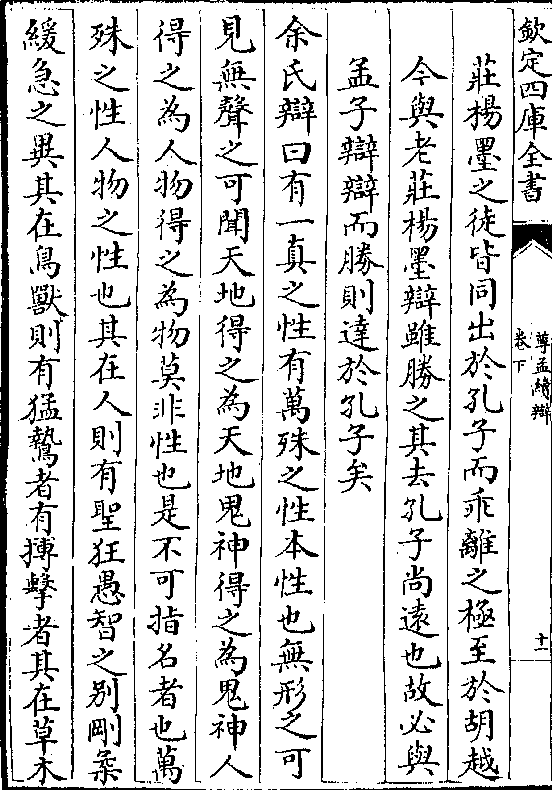 欽定四庫全書
尊孟續辯
卷下
十一
莊楊墨之徒皆同出於孔子而乖離之極至於胡越
今與老莊楊墨辯雖勝之其去孔子尚遠也故必與
孟子辯辯而勝則達於孔子矣
余氏辯曰有一真之性有萬殊之性本性也無形之可
見無聲之可聞天地得之為天地鬼神得之為鬼神人
得之為人物得之為物莫非性也是不可指名者也萬
殊之性人物之性也其在人則有聖狂愚智之别剛柔
緩急之異其在鳥獸則有猛鷙者有搏擊者其在草木